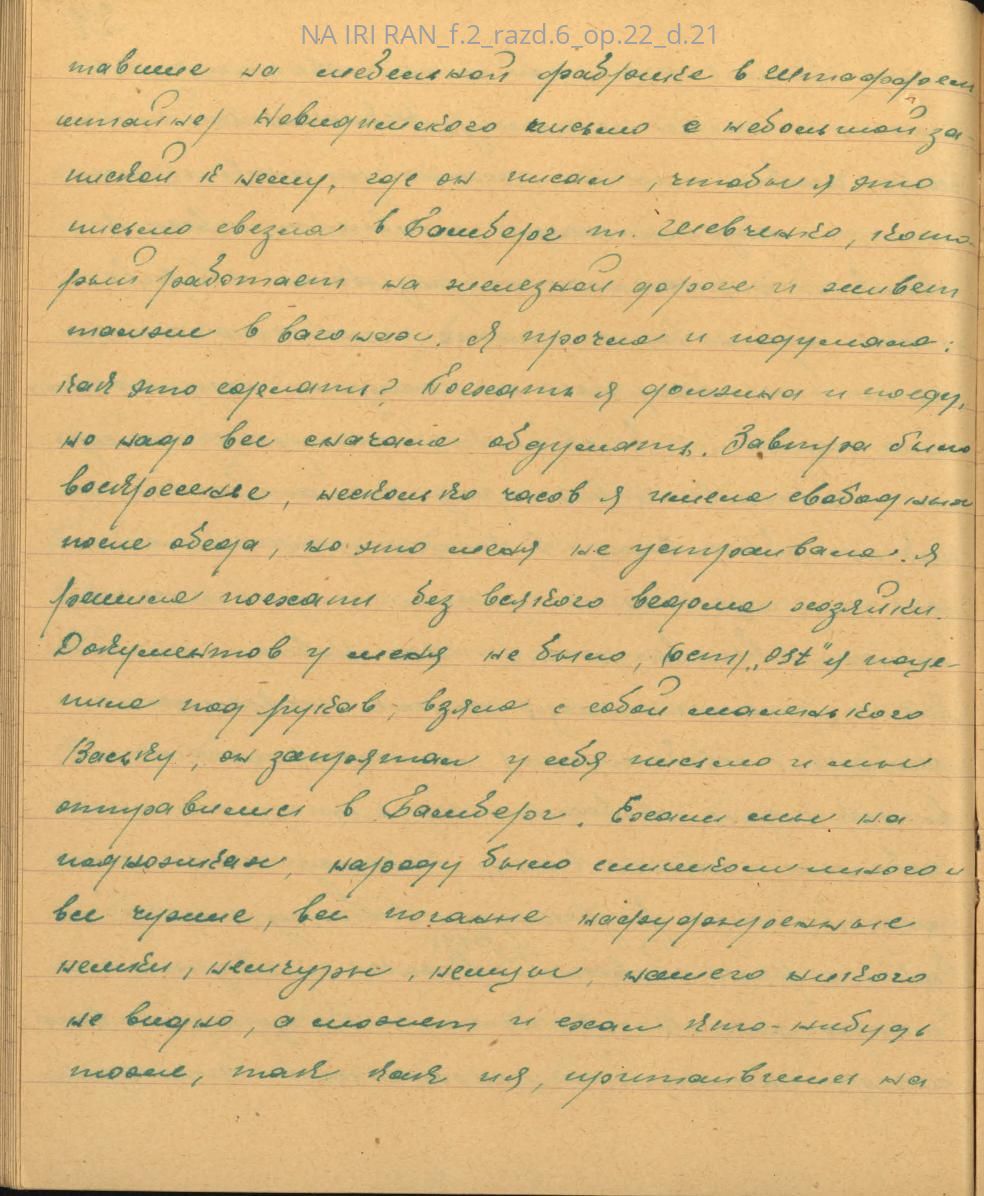 NA IRI RAN_f.2_razd.6_op.22_d.21
тавшие на мебельной фабрике в Штаффель
штайне) Невидимского письмо с небольшой за-
пиской к нему, где он писал, чтобы я это
письмо свезла в Бамберг т. Шевченко, кото-
рый работает на железной дороге и живет
также в вагонах. Я прочла и подумала:
как это сделать? Поехать я должна и поеду,
но надо все сначала обдумать. Завтра было
воскресенье, несколько часов я имела свободных
после обеда, но это меня не устраивало. Я
решила поехать без всякого ведома хозяйки.
Документов у меня не было, (ост) „ost" я наце-
пила под рукав, взяла с собой маленького
Ваську, он запрятал у себя письмо и мы
отправились в Бамберг. Ехали мы на
подножках, народу было слишком много и
все чужие, все поганые нафуфыренные
немки, немчуры, немцы, нашего никого
не видно, а может и ехал кто-нибудь
тоже, так как и я, притаившись на